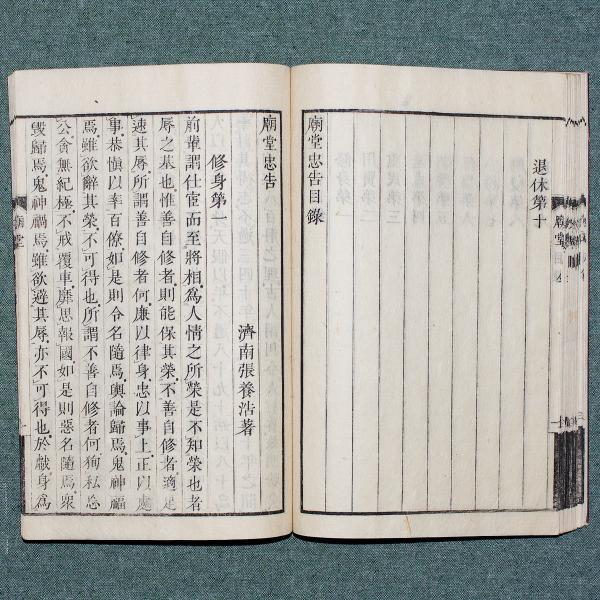 退休第十
廟堂忠告目錄
廟堂忠告
濟南張養浩著
修身第一
前輩謂仕宦而至將相爲人情之所榮是不知榮也者
辱之基也惟善自修者則能保其榮不善自修者適足
速其辱所謂善自修者何廉以律身忠以事上正以處
事恭愼以率百僚如是則令名隨焉輿論歸焉鬼神福
焉雖欲辭其榮不可得也所謂不善自修者何徇私忘
公貪無紀極不戒覆車靡思報國如是則惡名隨焉衆
毀歸焉鬼神禍焉雖欲避其辱亦不可得也於戲身爲
廟堂